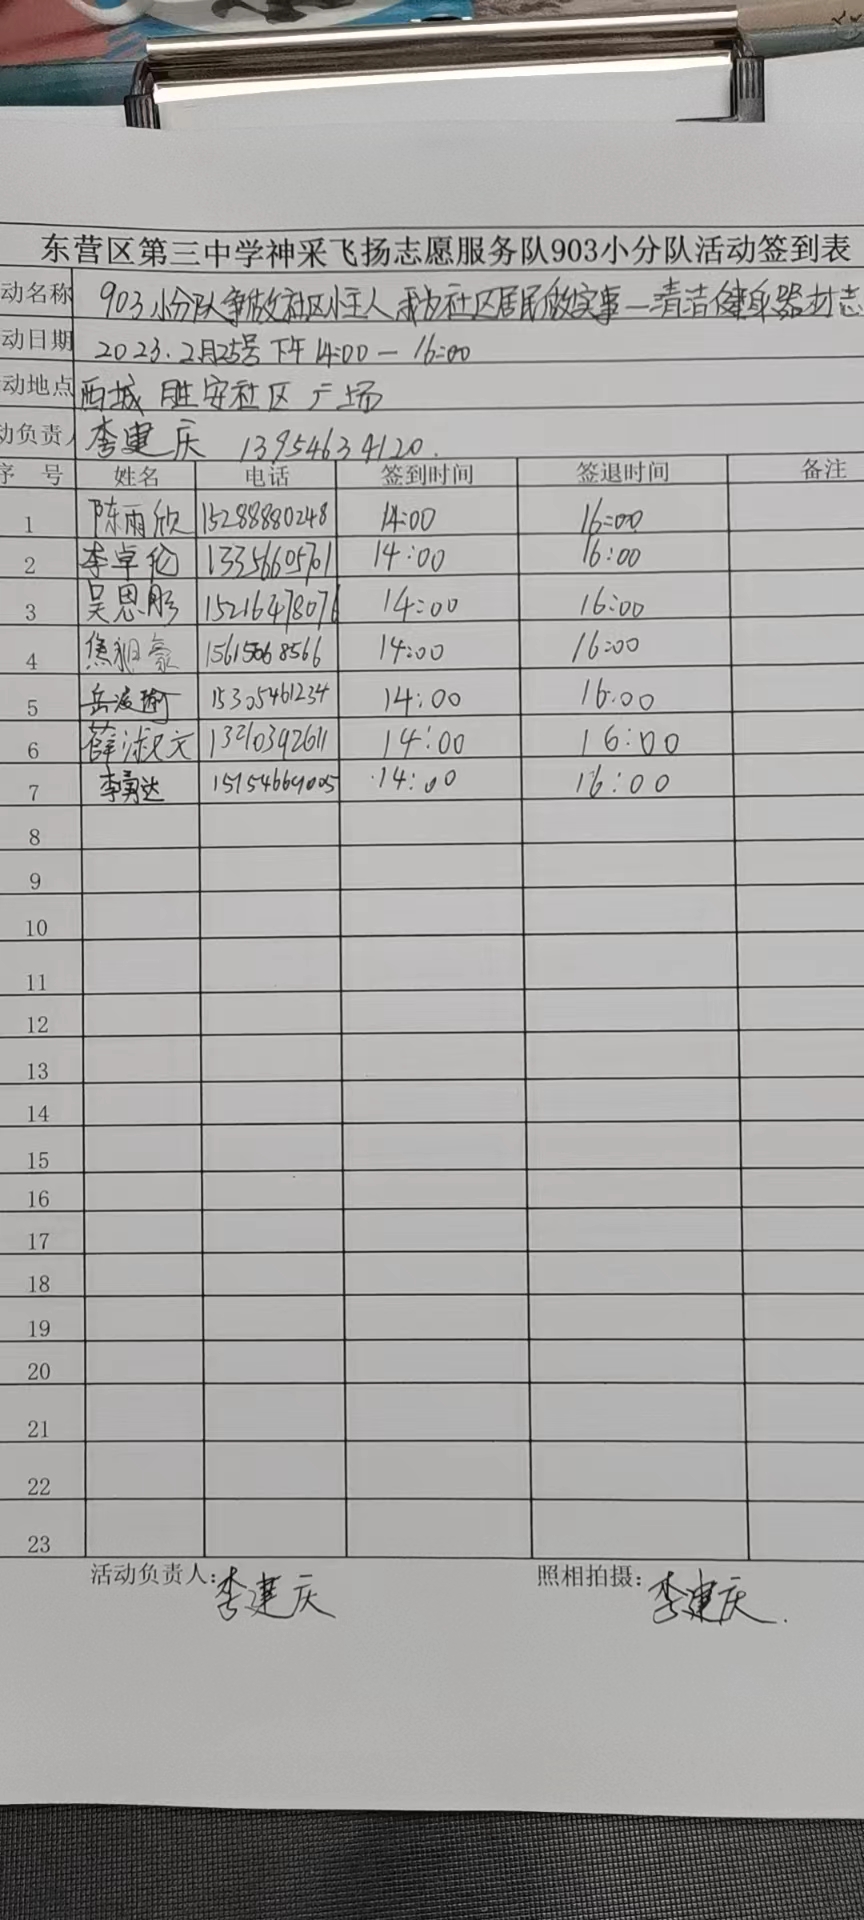 东营区第三中学神采飞扬志愿服务队903小分队活动签到表
动名称 903小分队争做社区小主人 我为社区居民做实事—清洁健身器材志
动日期 2023.2月25号下午14:00—16:00
动地点 西城 胜安社区广场
动负责人 李建庆 13954634120.
序 号 姓名 电话 签到时间 签退时间 备注
1 陈雨欣 15288880248 14:00 16:00
2 李卓伦 13356605701 14:00 16:00
3 吴恩彤 15216478076 14:00 16:00
4 焦 豪 15615068566 14:00 16:00
5 岳凌瑜 15305461234 14:00 16:00
6 薛淑文 13210392611 14:00 16:00
7 李勇达 15154669005 14:00 16:00
8
9
10
11
12
13
14
15
16
17
18
19
20
21
22
23
活动负责人:李建庆 照相拍摄:李建庆.